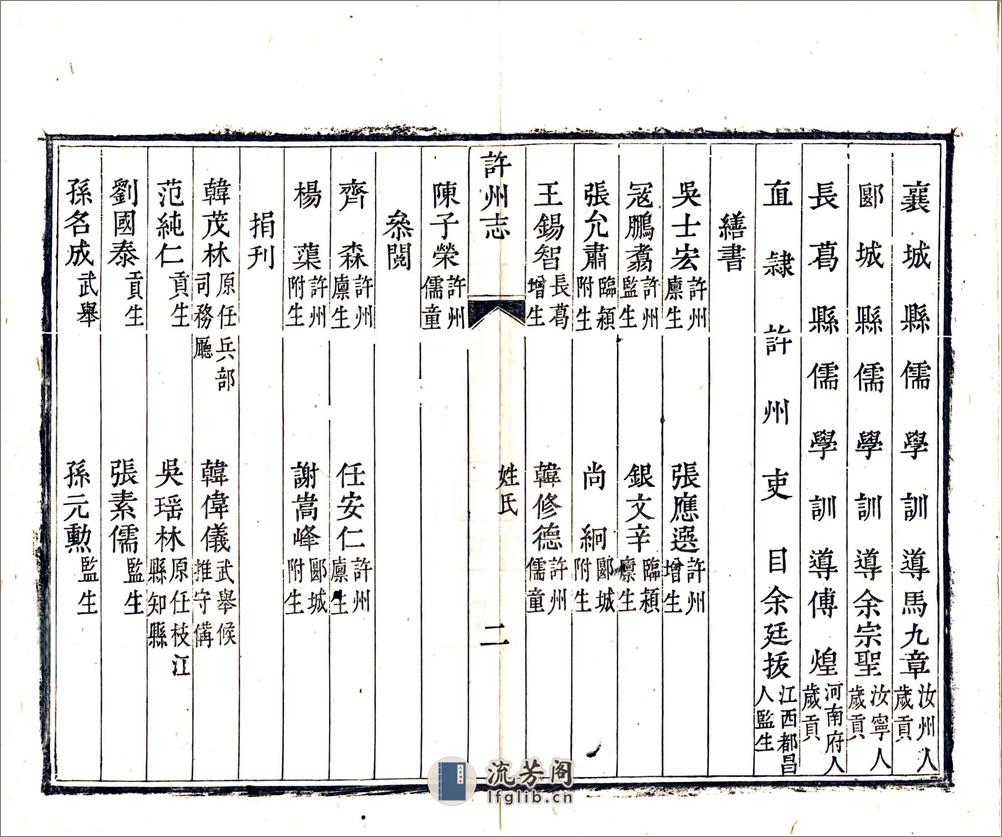 襄城縣儒學訓導馬九章汝州人歲貢
郾城縣儒學訓導余宗聖汝寧人歲貢
長葛縣儒學訓導傅煌河南府人歲貢
直隸許州吏目余廷拔江西都昌人監生
繕書
吳士宏許州廪生 張應選許州增生
冦鵬翥許州監生 銀文辛臨潁廪生
張允肅臨潁附生 尚絅郾城附生
王錫智長葛增生 韓修德許州儒童
許州志 姓氏 二
陳子榮許州儒童
叅閱
齊森許州廪生 任安仁許州廪生
楊蕖許州附生 謝嵩峰郾城附生
捐刋
韓茂林原任兵部司務廳 韓偉儀武舉候推守備
范純仁貢生 吳瑶林原任枝江縣知縣
劉國泰貢生 張素儒監生
孫名成武舉 孫元勲監生
流芳阁
lfglib.cn